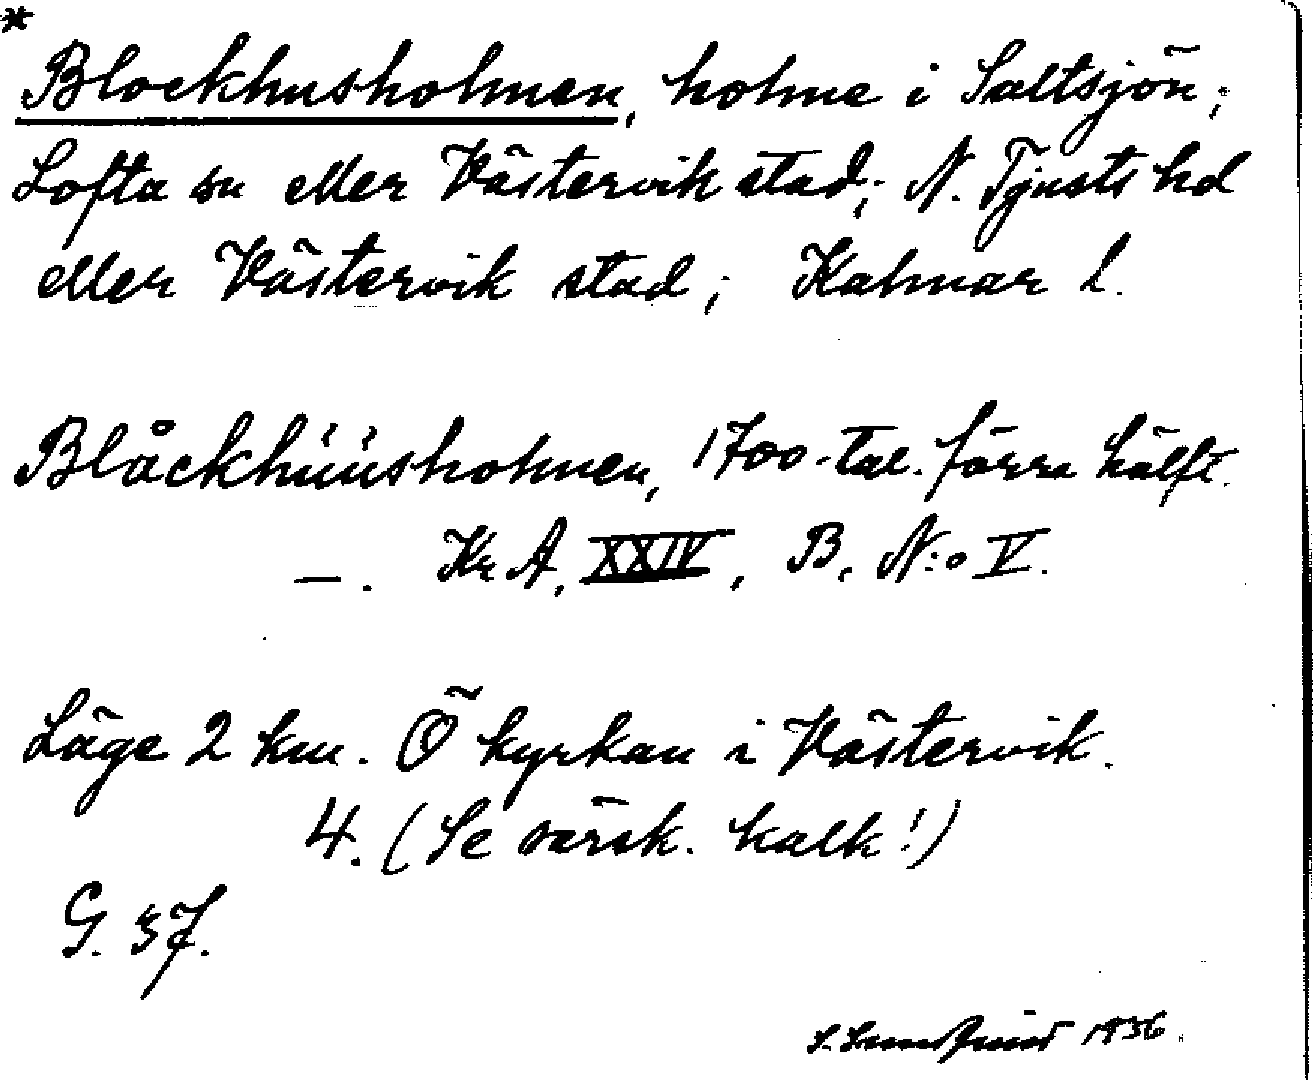 *
Blockhusholmen, holme i Saltsjön;
Lofta sn eller Västervik stad; N. Tjusts hd
eller Västervik stad; Kalmar l.
Blåckhúúsholmen, 1700-tal. förra hälft.
—. Kr A, XXIV, B, N:o V.
Läge 2 km. Ö kyrkan i Västervik.
4. (Se särsk. kalk!)
G. 37.
S. 1936.